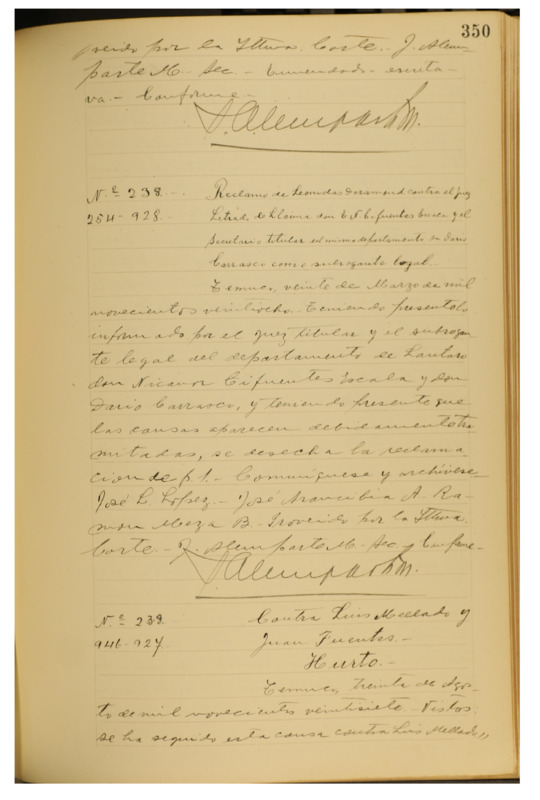 350
veido por la Iltma. Corte. J. Alem-
parte M. Sec. - Enmendado - escrita-
va. - Conforme -
J. Alemparte M.
N.º 238. -
254 - 928. -
Reclamo de Leonidas contra el juez
Letrado de don C. N. Cifuentes Escala y el
Secretario titular del mismo departamento don Dario
Carrasco como subrogante legal. -
Temuco, veinte de Marzo de mil
novecientos veintiocho. - Teniendo presente lo
informado por el juez titular y el subrogan-
te legal del departamento de Lautaro
don Nicanor Cifuentes Escala y don
Dario Carrasco, y teniendo presente que
las causas aparecen debidamente tra
mitadas, se desecha la reclama-
cion de f. 1. - Comuníquese y archívese -
José L. López. - José Arancibia A. Ra-
mon Meza B. - Proveido por la Iltma.
Corte. - J. Alemparte M. - Sec. - Conforme -
J. Alemparte M.
N.º 239.
946 - 927.
Contra Luis Mellado y
Juan Fuentes. -
Hurto. -
Temuco, treinta de Agos-
to de mil novecientos veintisiete. - Vistos:
se ha seguido esta causa contra Luis Mellado,,